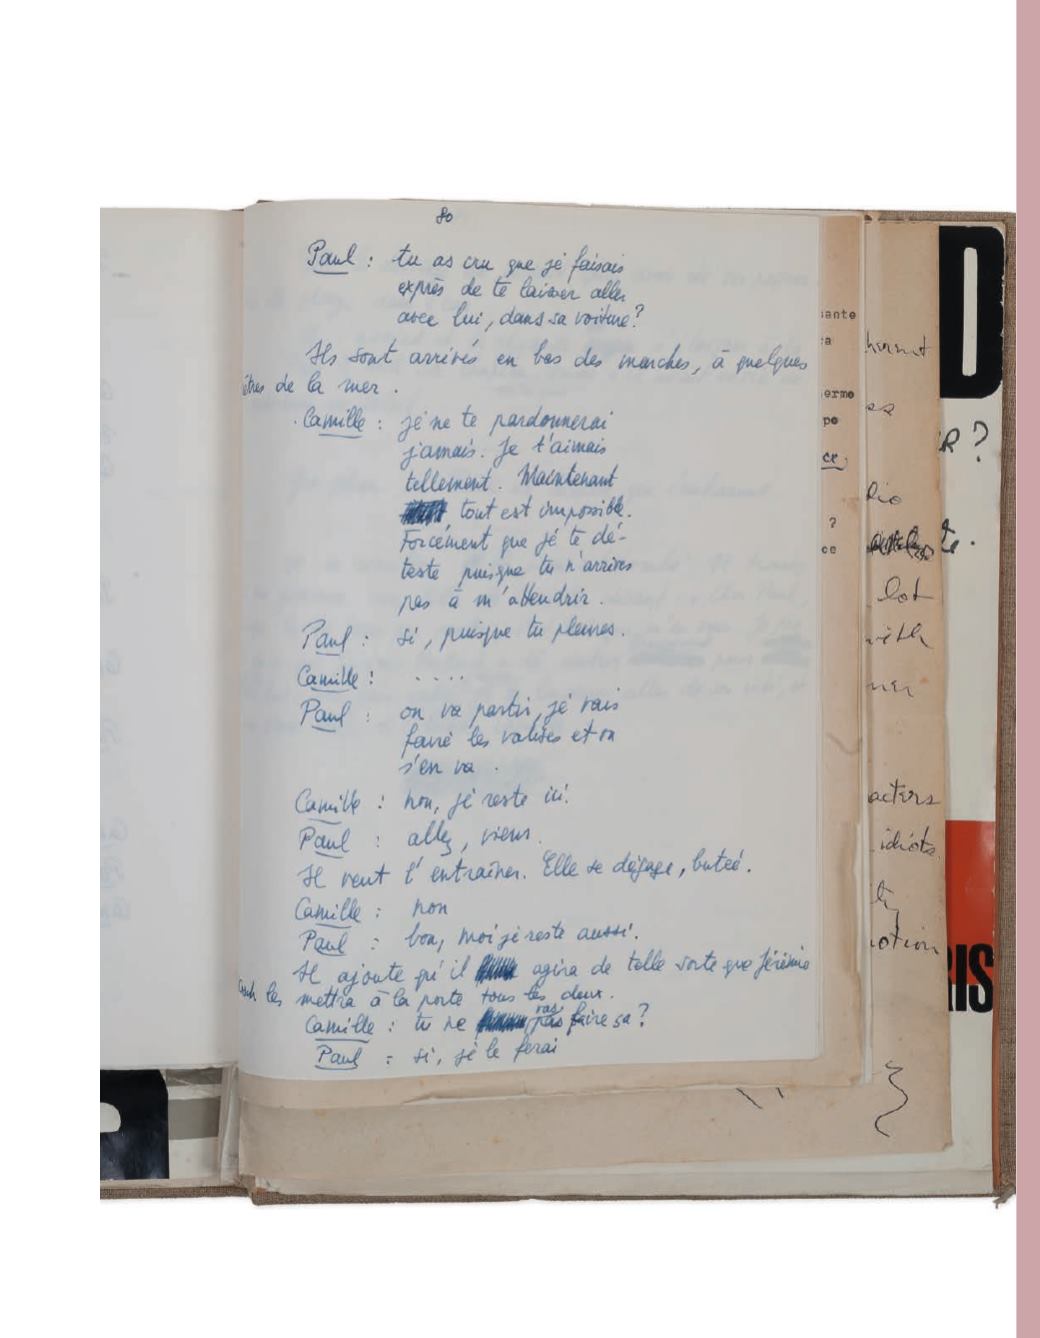 80
Paul : tu as cru que je faisais
exprès de te laisser aller
avec lui, dans sa voiture?
Ils sont arrivés en bas des marches, à quelques
ètres de la mer .
Camille : je ne te pardonnerai
jamais. Je t'aimais
tellement. Maintenant
tout est impossible.
Forcément que je te dé-
teste puisque tu n'arrives
pas à m'attendrir.
Paul : si, puisque tu pleures.
Camille : ....
Paul : on va partir, je vais
faire les valises et on
s'en va .
Camille : non, je reste ici.
Paul : allez, viens.
Il veut l'entraîner. Elle se dégage, butée.
Camille : non
Paul : bon, moi je reste aussi.
Il ajoute qu'il agira de telle sorte que Jérémie
les mettra à la porte tous les deux.
Camille : tu ne vas pas faire sa?
Paul : si, je le ferai
sante
a
erme
po
ce,
?
ce
hermt
es
dio
lot
with
ner
acters
idiots.
ty
otion
D
R?
te.
RIS